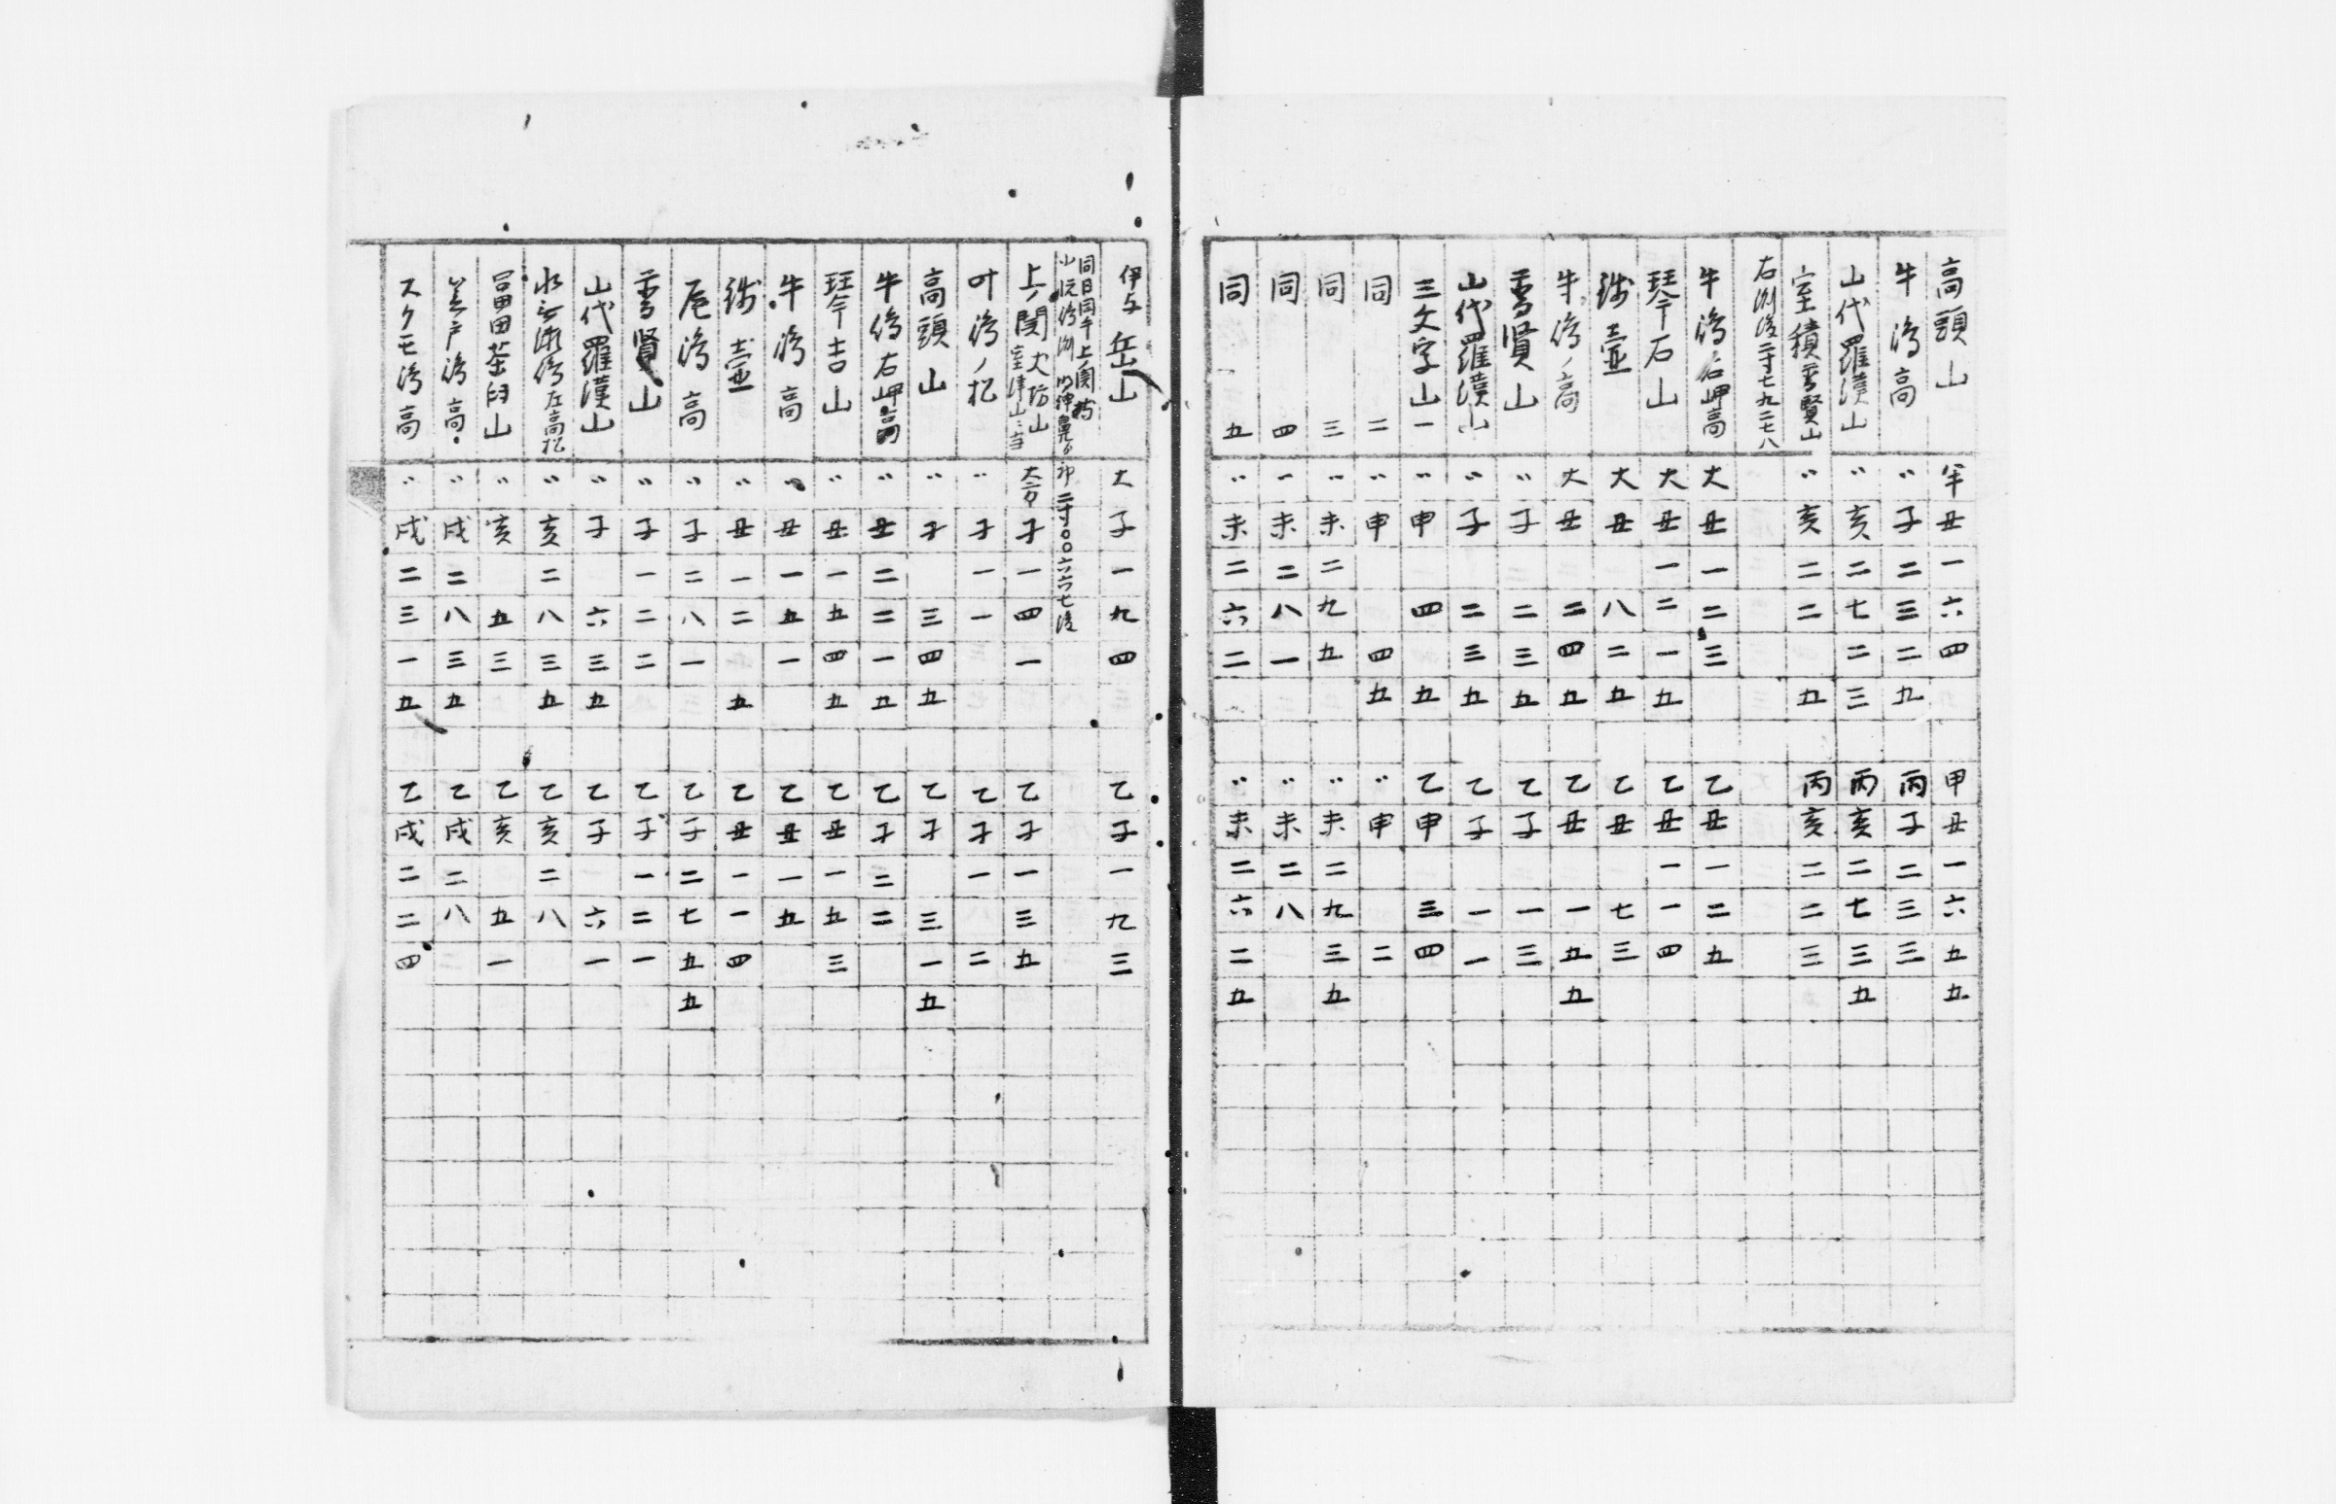 高頭山 半 丑 一 六 四 甲 丑 一 六 五 五
牛 高 〃 子 二 三 二 九 丙 子 二 三 三
山代羅漢山 〃 亥 二 七 二 三 丙 亥 二 七 三 五
室積雪賢山 〃 亥 二 二 五 丙 亥 二 二 三
右 二寸七九二七八
牛 右岬高 大 丑 一 二 三 乙 丑 一 二 五
琴石山 大 丑 一 二 一 五 乙 丑 一 一 四
壷 大 丑 八 二 五 乙 丑 七 三
牛 ノ高 大 丑 二 四 五 乙 丑 一 五 五
雪賢山 〃 子 二 三 五 乙 子 一 三
山代羅漢山 〃 子 二 三 五 乙 子 一 一
三文字山 一 〃 申 四 五 乙 申 三 四
同 二 〃 申 四 五 〃 申 二
同 三 〃 未 二 九 五 〃 未 二 九 三 五
同 四 〃 未 二 八 一 〃 未 二 八
同 五 〃 未 二 六 二 〃 未 二 六 二 五
伊与 岳山 大 子 一 九 四 乙 子 一 九 三
同日同午上関
小 卯 二寸〇〇六六七
上ノ関 山 大方 子 一 四 一 乙 子 一 三 五
叶 ノ松 〃 子 一 一 乙 子 一 二
高頭山 〃 子 三 四 五 乙 子 三 一 五
牛 右岬高 〃 丑 二 二 一 五 乙 子 二 二
琴古山 〃 丑 一 五 四 五 乙 丑 一 五 三
牛 高 〃 丑 一 五 一 乙 丑 一 五
壷 〃 丑 一 二 五 乙 丑 一 一 四
尾 高 〃 子 二 八 一 乙 子 二 七 五 五
雪賢山 〃 子 一 二 二 乙 子 一 二 一
山代羅漢山 〃 子 六 三 五 乙 子 六 一
左高松 〃 亥 二 八 三 五 乙 亥 二 八
冨田茶臼山 〃 亥 五 三 乙 亥 五 一
戸 高 〃 戌 二 八 三 五 乙 戌 二 八
スクモ 高 〃 戌 二 三 一 五 乙 戌 二 二 四